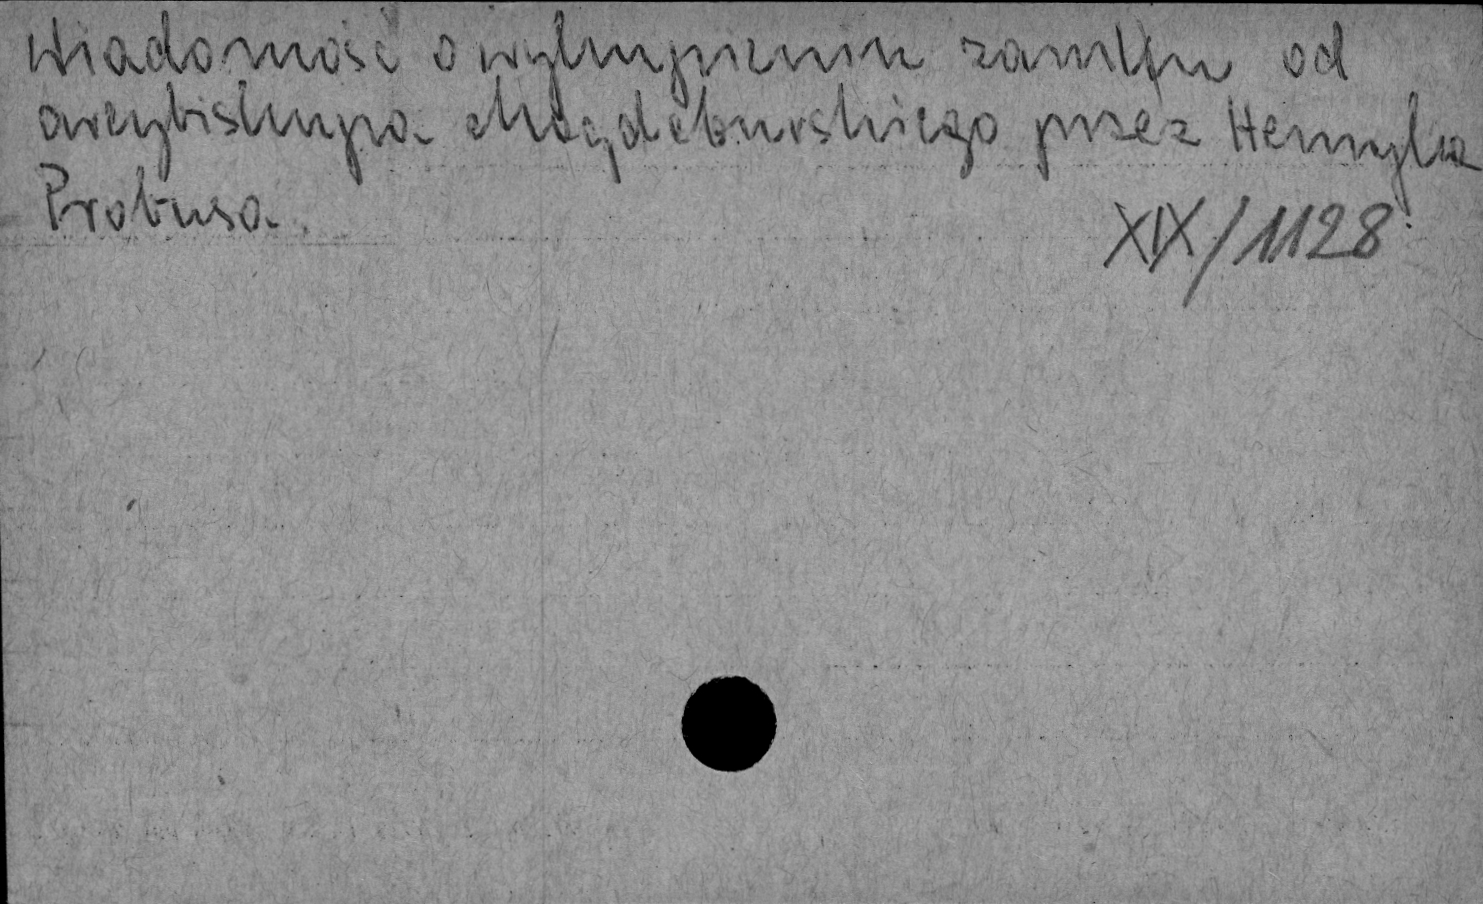 Wiadomość o wykupieniu zamku od
arcybiskupa Magdeburskiego przez Henryka
Probusa.
XIX/1128